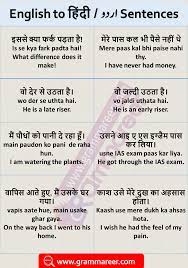 English to हिंदी / اردو Sentences
इससे क्या फर्क पड़ता है!
Is se kya fark padta hai!
What difference does it
make!
मेरे पास कल भी पैसे नहीं थे
Mere paas kal bhi paise nahi
thy.
I have never had money.
वो देर से उठता है।
wo der se uthta hai.
He is a late riser.
वो जल्दी उठता है।
vo jaldi uthata hai.
He is an early riser.
मैं पौधों को पानी दे रहा हूँ।
main paudon ko pani de raha
hun.
I am watering the plants.
उसने आइ ए एस इग्जैम पास
कर लिया।
usne IAS exam paas kar liya.
He got through the IAS exam.
वापिस आते हुए, मैं उसके घर
गया।
vapis aate hue, main usake
ghar gaya.
On the way back I went to his
home.
काश उसे मेरे दुख का अहसास
होता।
Kaash use mere dukh ka ahsas
hota.
I wish he had the feel of my
pain.
www.grammareer.com